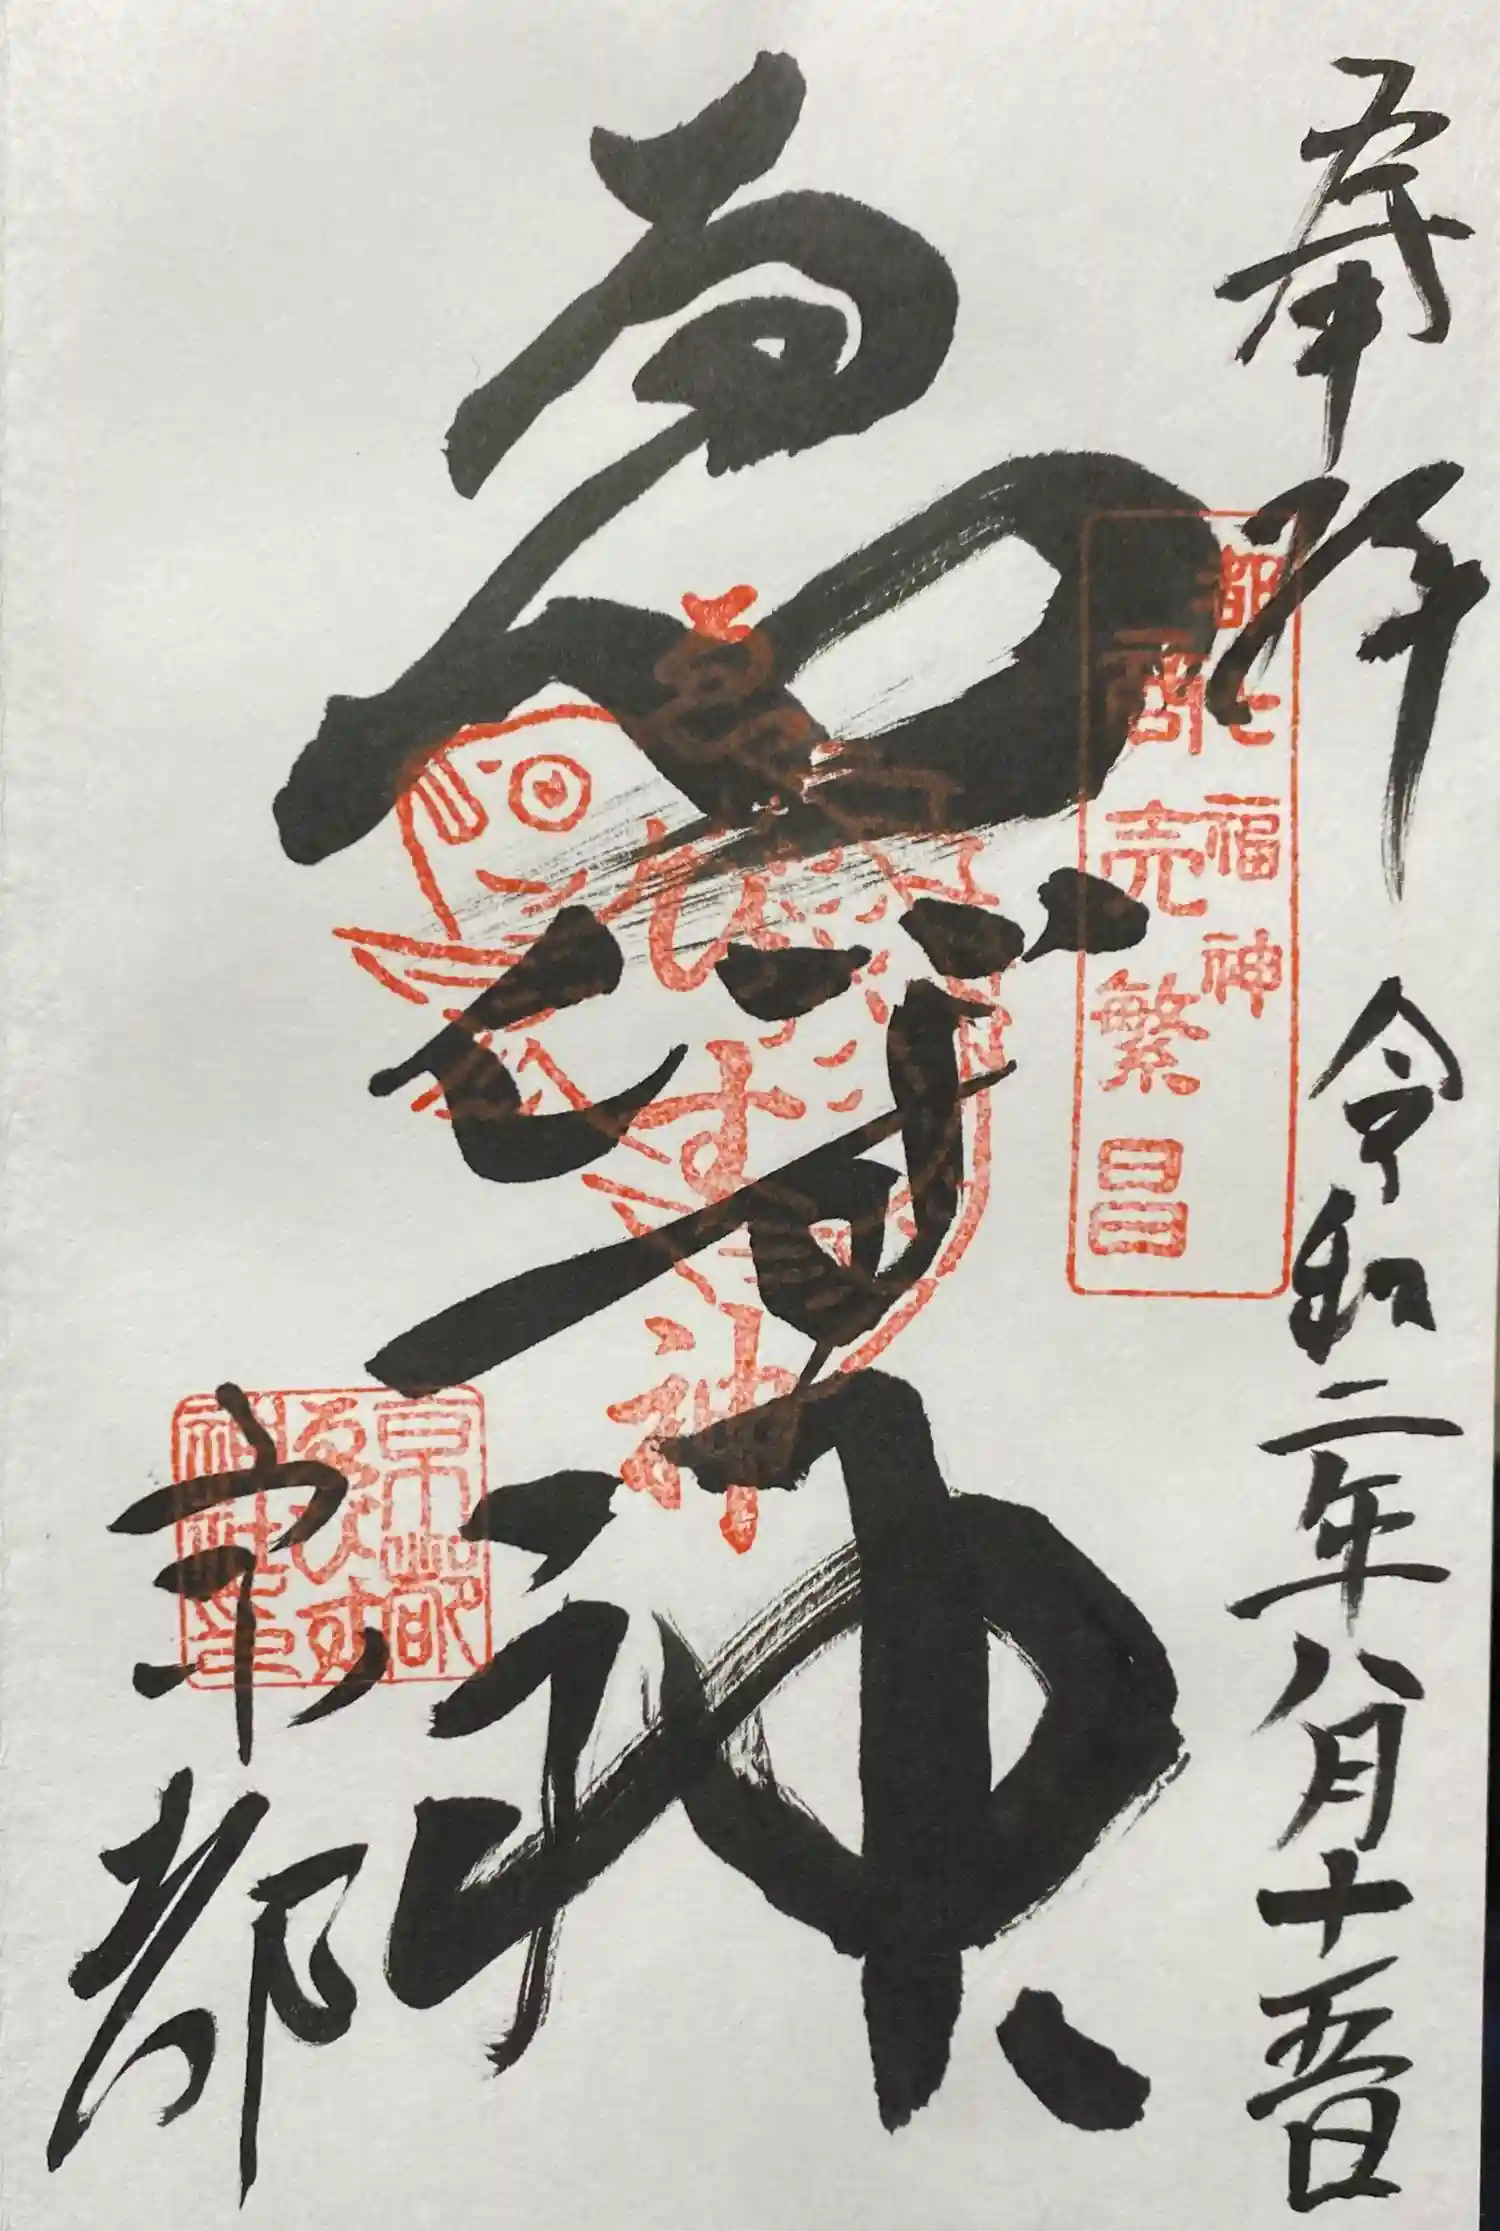 奉拝 令和二年八月十五日
都七福神
商売繁昌
ゑびす神
ゑびす神
京都ゑびす神社印
京都